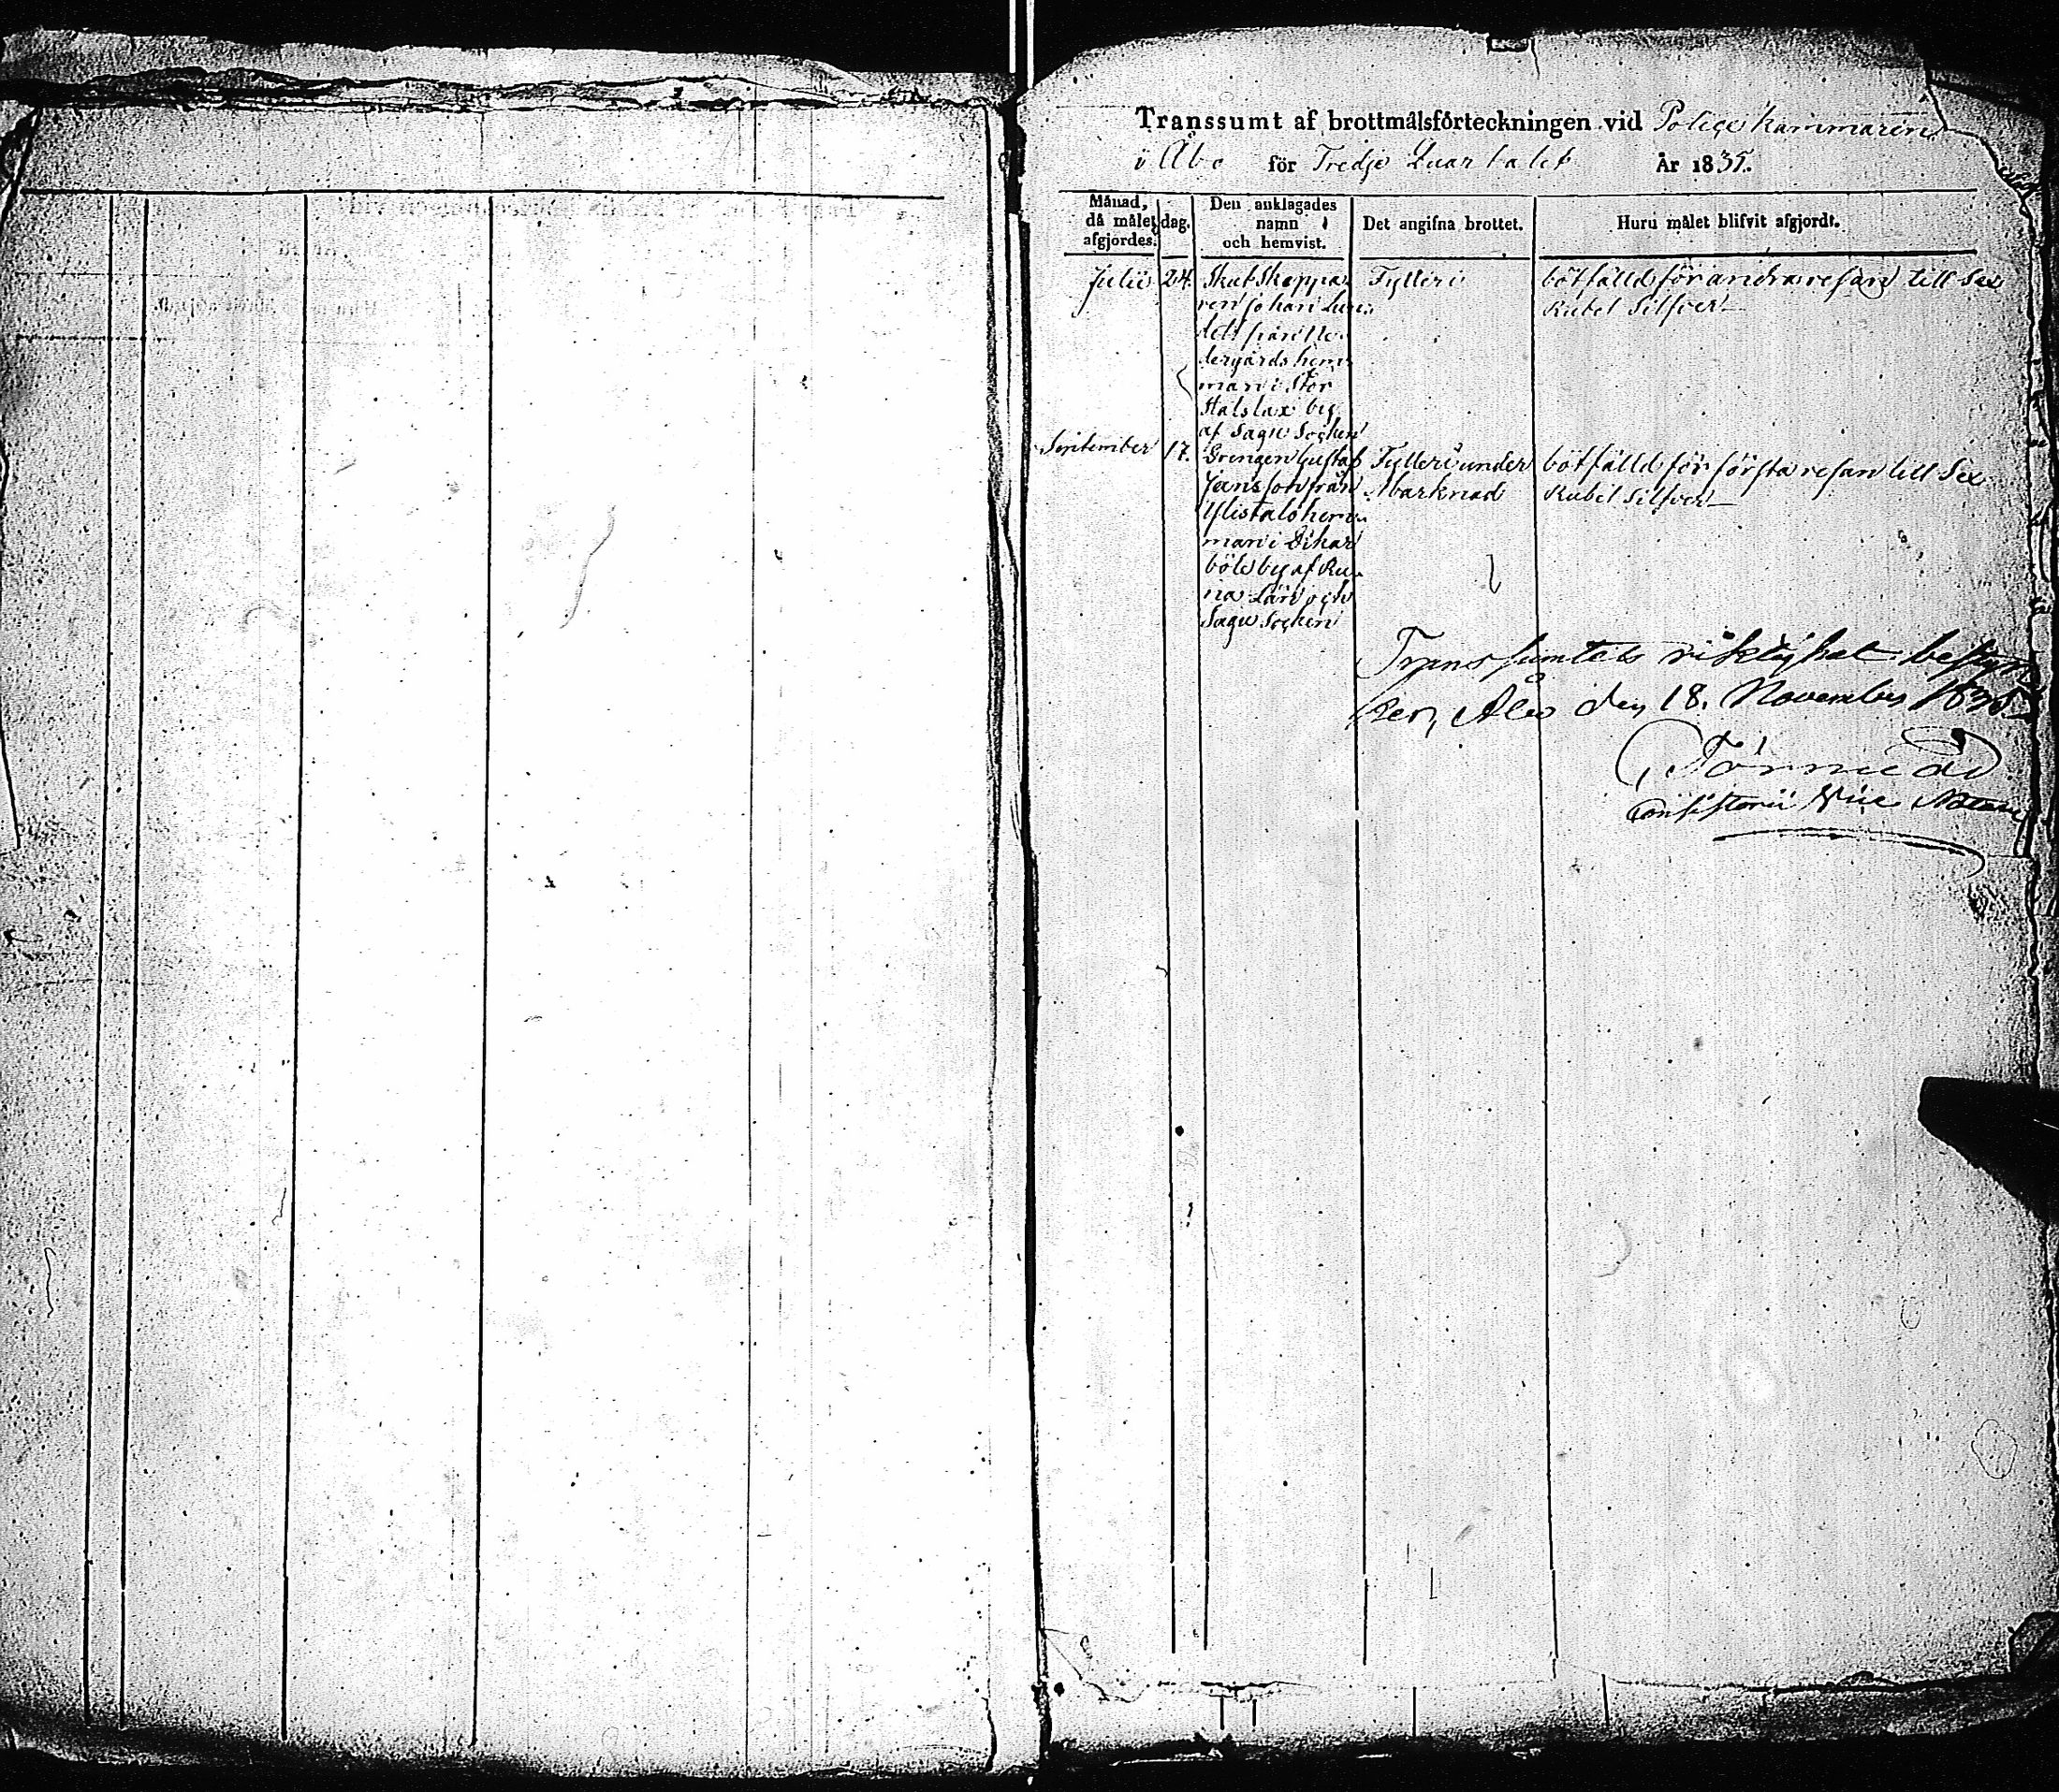 Transsumt af brottmålsförteckningen vid Policekammaren
i Åbo för Tredje Quartalet År 1835.
Månad, då målet afgjordes.
dag.
Den anklagades namn och hemvist.
Det angifna brottet.
Huru målet blifvit afgjordt.
Julii 24. Skutskeppa- Fylleri bötfälld för andra resan till Sex
ren Johan Lun- Rubel Silfver
delt från Ne-
dergårds hem-
man i Stor
Halslax by
af Sagu Socken
September 17. Drengen Gustaf Fylleri under bötfälld för första resan till Sex
Jansson från Marknad Rubel Silfver
Ylistalo hem-
man i
böle by af
na Län och
Sagu Socken
Transsumtets riktighet bestyr-
ker, Åbo den 18. November 1835
Consistorii Vice Notarie